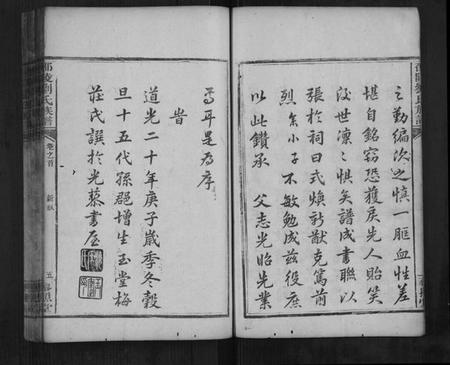 之勤編次之慎一腔血性差
堪自銘竊恐獲戾先人貽笑
後世凜凜惧矣譜成書聯以
張於祠曰式煥新猷克篤前
烈余小子不敏勉成茲役庶
以此鑽承 父志光昭先業
焉耳是為序
旹
道光二十年庚子歲季冬穀
旦十五代孫邑增生玉堂梅
莊氏譔於光藜書屋
邵陵劉氏族譜
卷之首
新敘
五